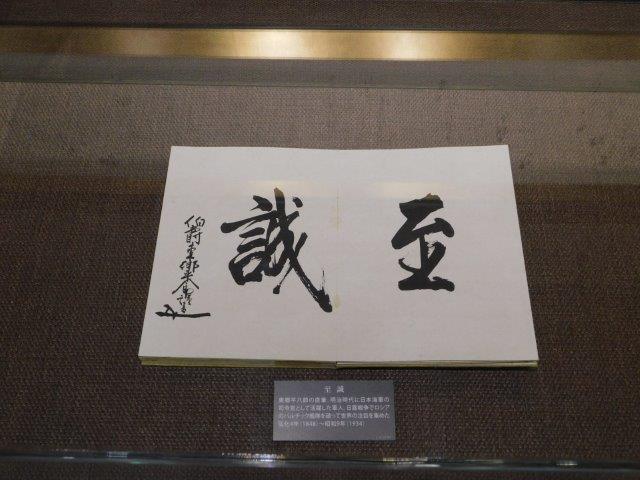 至誠
伯爵東郷平八郎謹書
至 誠
東郷平八郎の直筆。明治時代に日本海軍の
司令官として活躍した軍人。日露戦争でロシア
のバルチック艦隊を破って世界の注目を集めた
弘化4年(1848)～昭和9年(1934)